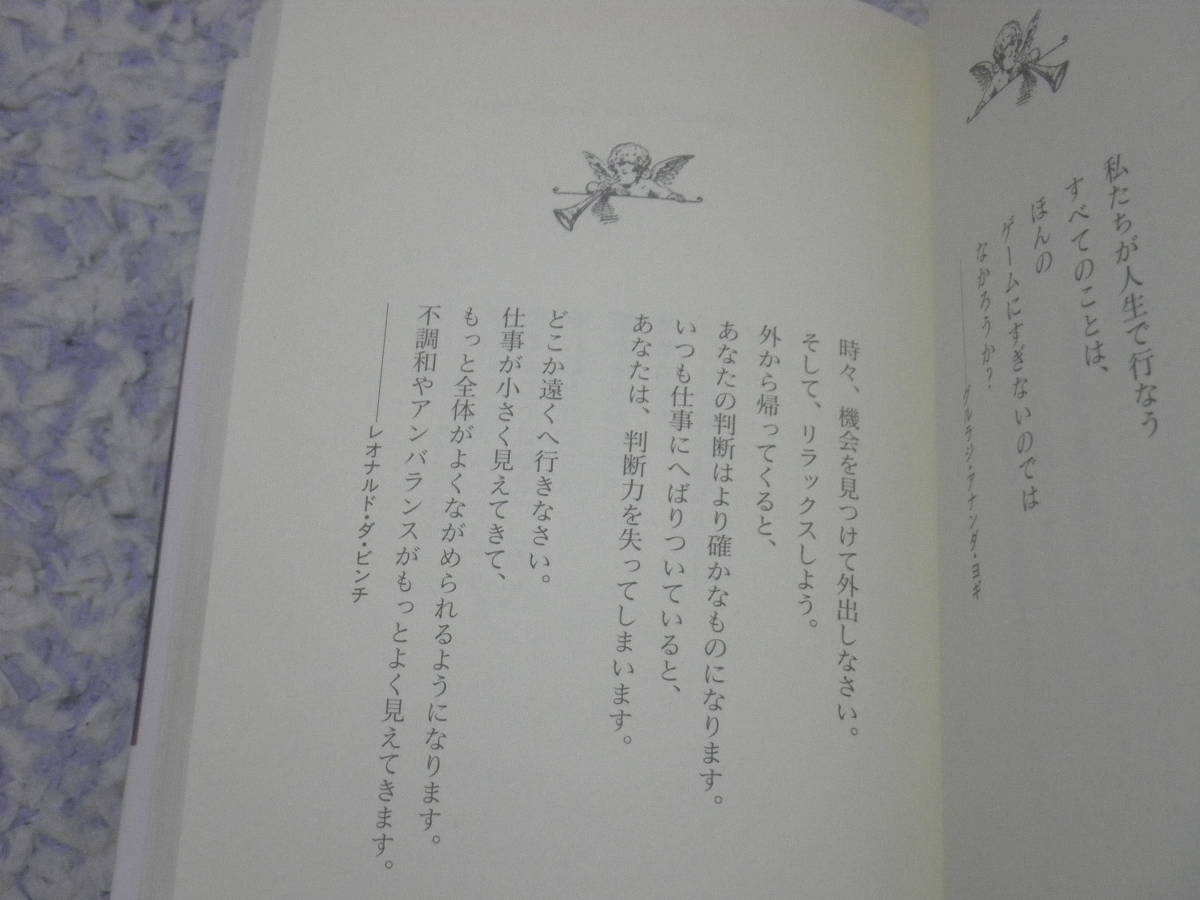 私たちが人生で行なう
すべてのことは、
ほんの
ゲームにすぎないのでは
なかろうか?
———グルラジ・アナンダ・ヨギ
時々、機会を見つけて外出しなさい。
そして、リラックスしよう。
外から帰ってくると、
あなたの判断はより確かなものになります。
いつも仕事にへばりついていると、
あなたは、判断力を失ってしまいます。
どこか遠くへ行きなさい。
仕事が小さく見えてきて、
もっと全体がよくながめられるようになります。
不調和やアンバランスがもっとよく見えてきます。
———レオナルド・ダ・ビンチ